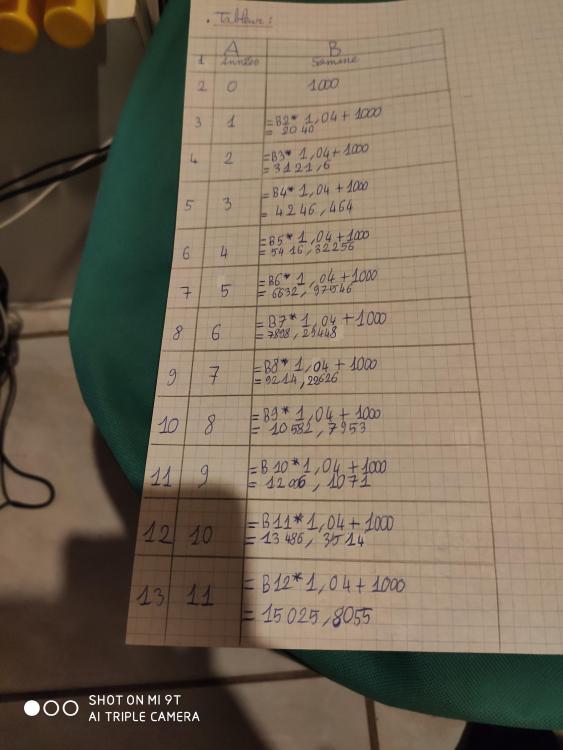 . Tableur :
A B
1 Années Somme
2 0 1000
3 1 =B2* 1,04+1000
= 2040
4 2 =B3* 1,04+1000
= 3121,6
5 3 =B4* 1,04+1000
= 4246,464
6 4 =B5* 1,04+1000
= 5416,32256
7 5 =B6* 1,04+1000
= 6632,97546
8 6 =B7* 1,04+1000
= 7898,29448
9 7 =B8* 1,04+1000
= 9214,22626
10 8 =B9* 1,04+1000
= 10582,7953
11 9 =B10*1,04+1000
= 12006,1071
12 10 =B11*1,04+1000
= 13486,3514
13 11 = B12*1,04+1000
= 15025,8055
SHOT ON MI 9T
AI TRIPLE CAMERA